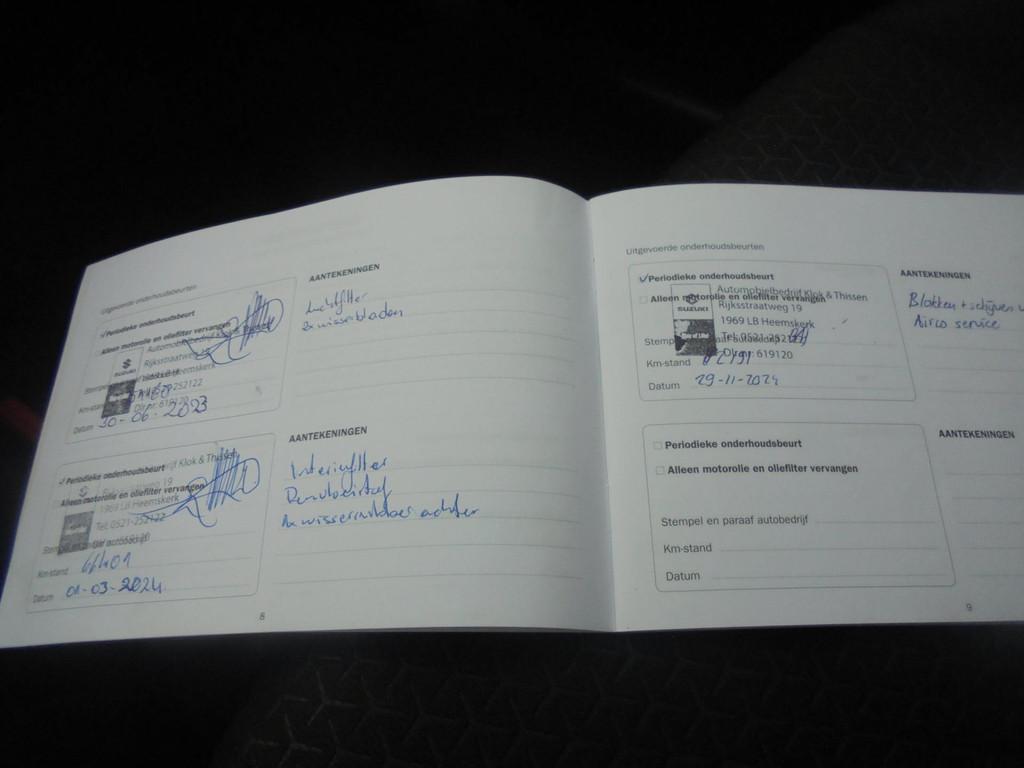 Uitgevoerde onderhoudsbeurten
✓Periodieke onderhoudsbeurt
Alleen motorolie en oliefilter vervangen
Automobielbedrijf Klok & Thissen
SUZUKI
Rijksstraatweg
1969 LB Heemskerk
Tel: 0521-252122
Dlr.nr: 619120
Km-stand
Datum 30-06-2023
AANTEKENINGEN
Luchtfilter
2x wisserbladen
✓Periodieke onderhoudsbeurt
Alleen motorolie en oliefilter vervangen
Klok & Thissen
19
1969 LB Heemskerk
Tel: 0521-252122
Km-stand 66401
Datum 01-03-2024
AANTEKENINGEN
Interieurfilter
Remvloeistof
achter
8
Uitgevoerde onderhoudsbeurten
✓Periodieke onderhoudsbeurt
Alleen motorolie en oliefilter vervangen
Automobielbedrijf Klok & Thissen
SUZUKI
Rijksstraatweg 19
1969 LB Heemskerk
Tel: 0521-252122
Stempel en paraaf autobedrijf
Dlr.nr: 619120
Km-stand
Datum 29-11-2024
AANTEKENINGEN
Blokken + schijven
Airco service
Periodieke onderhoudsbeurt
Alleen motorolie en oliefilter vervangen
Stempel en paraaf autobedrijf
Km-stand
Datum
AANTEKENINGEN
9